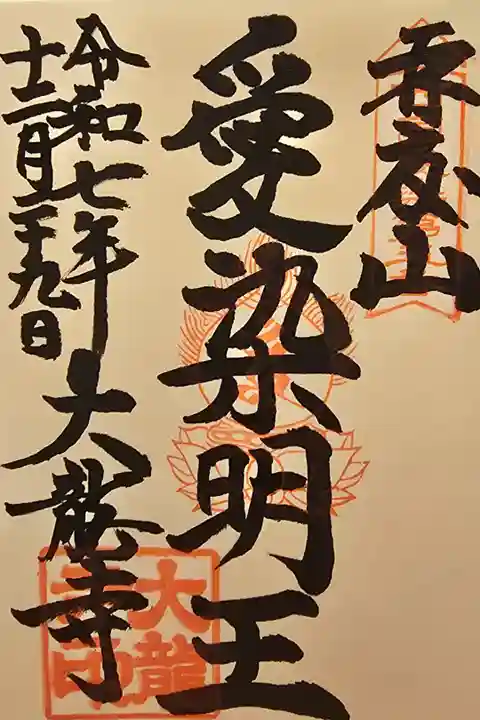 呑夜山
愛染明王
令和七年
十二月二十九日
大龍寺
大龍
寺印